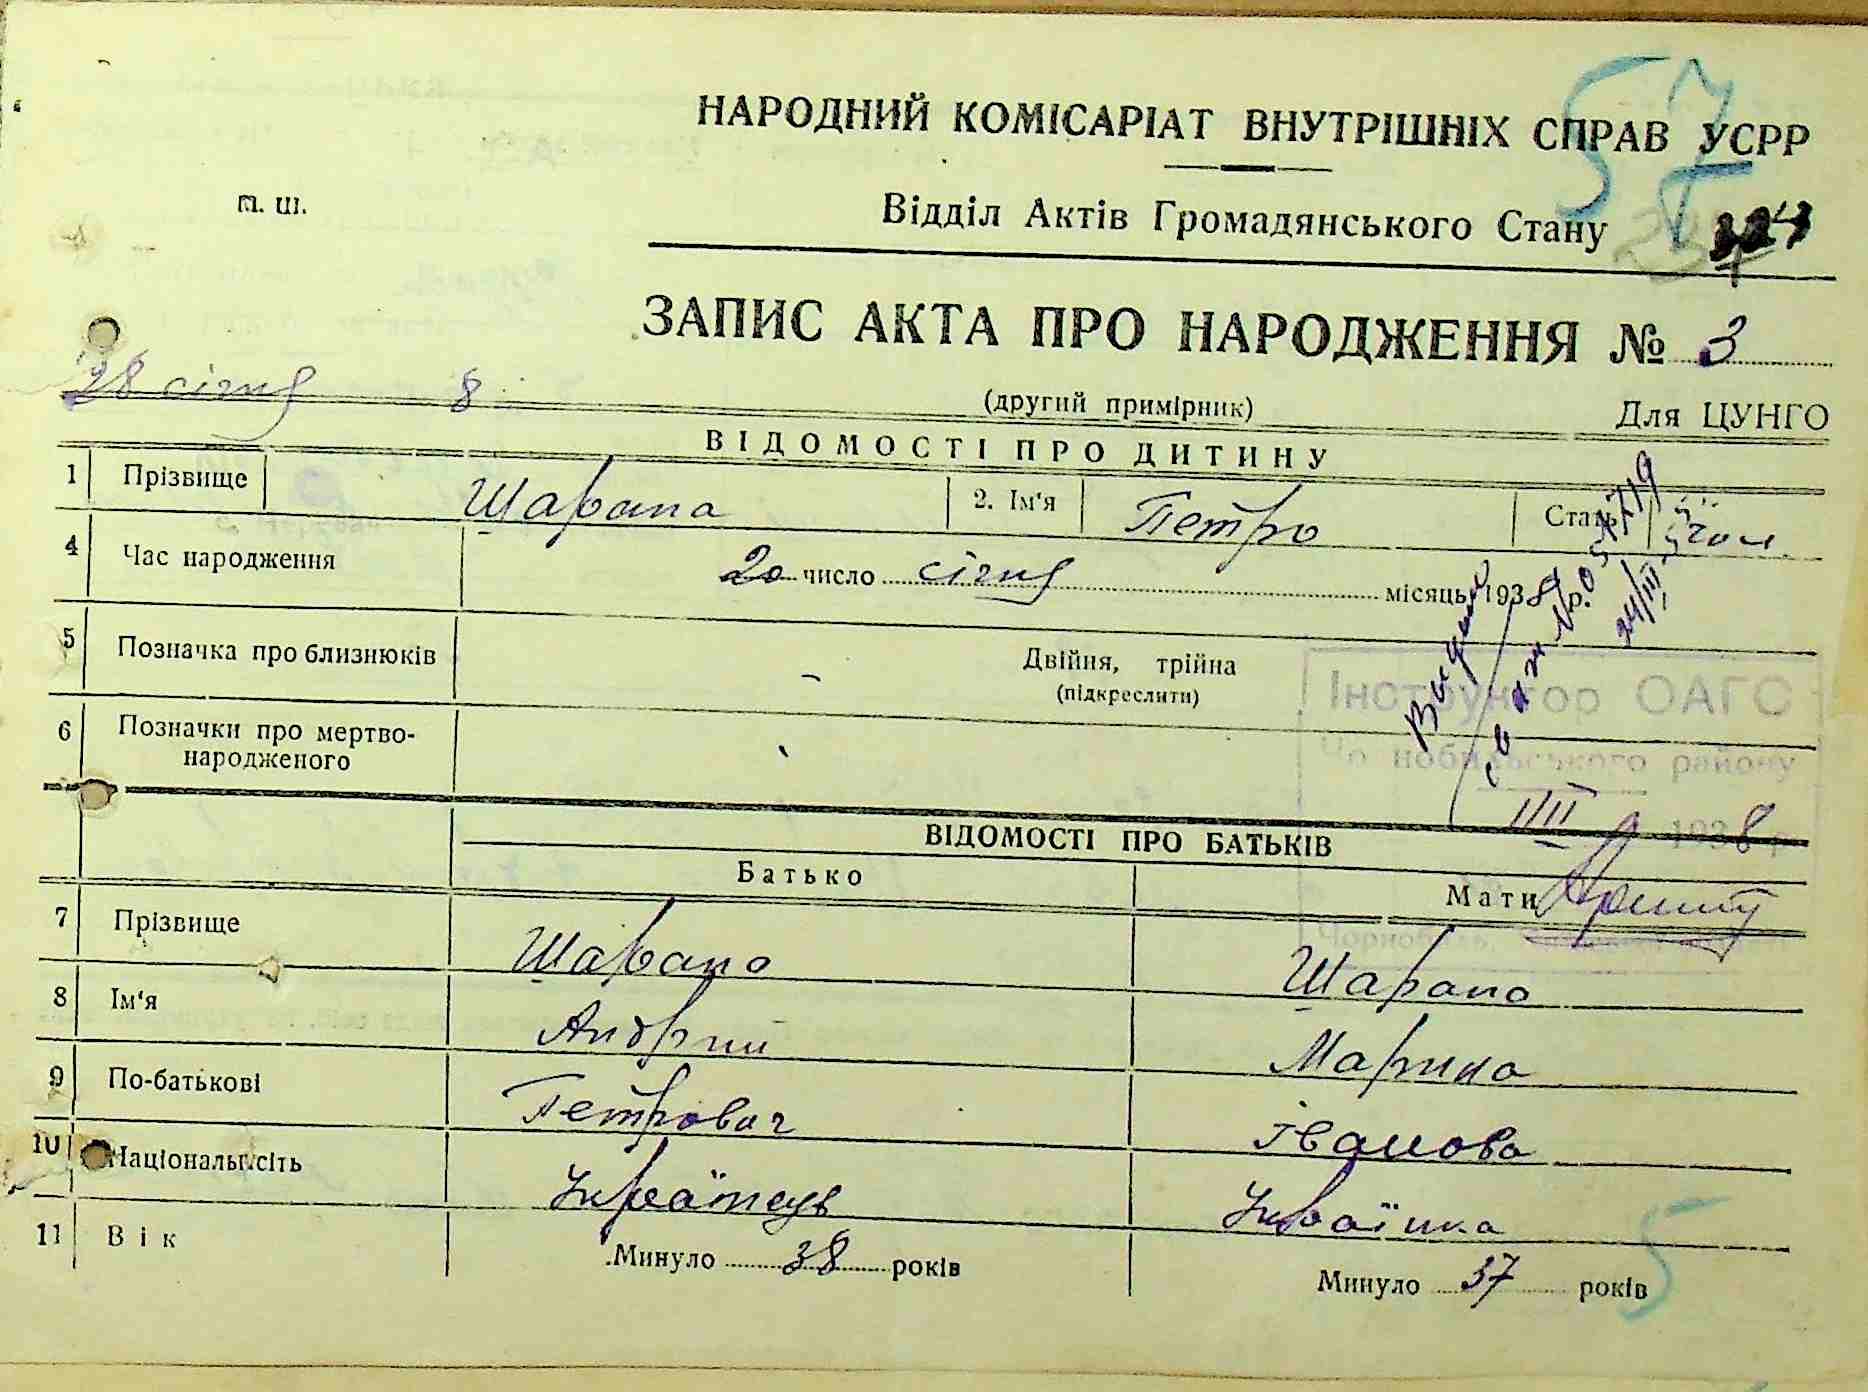 57
НАРОДНИЙ КОМІСАРІАТ ВНУТРІШНІХ СПРАВ УСРР
п. ш.
Відділ Актів Громадянського Стану
ЗАПИС АКТА ПРО НАРОДЖЕННЯ № 3
28 січня 8
(другий примірник) Для ЦУНГО
ВІДОМОСТІ ПРО ДИТИНУ
1 Прізвище Шарапа 2. Ім'я Петро Стать чол.
4 Час народження 20 число січня місяць 1938 р.
5 Позначка про близнюків - Двійня, трійна
(підкреслити)
6 Позначки про мертво-
народженого
Інструктор ОАГС
района
1938 р
Чорнобиль,
ВІДОМОСТІ ПРО БАТЬКІВ
Батько Мати
7 Прізвище Шарапа Шарапа
8 Ім'я Андрий Марина
9 По-батькові Петрович Іванова
10 Національність Українець Українка
11 Вік Минуло 38 років Минуло 37 років
5